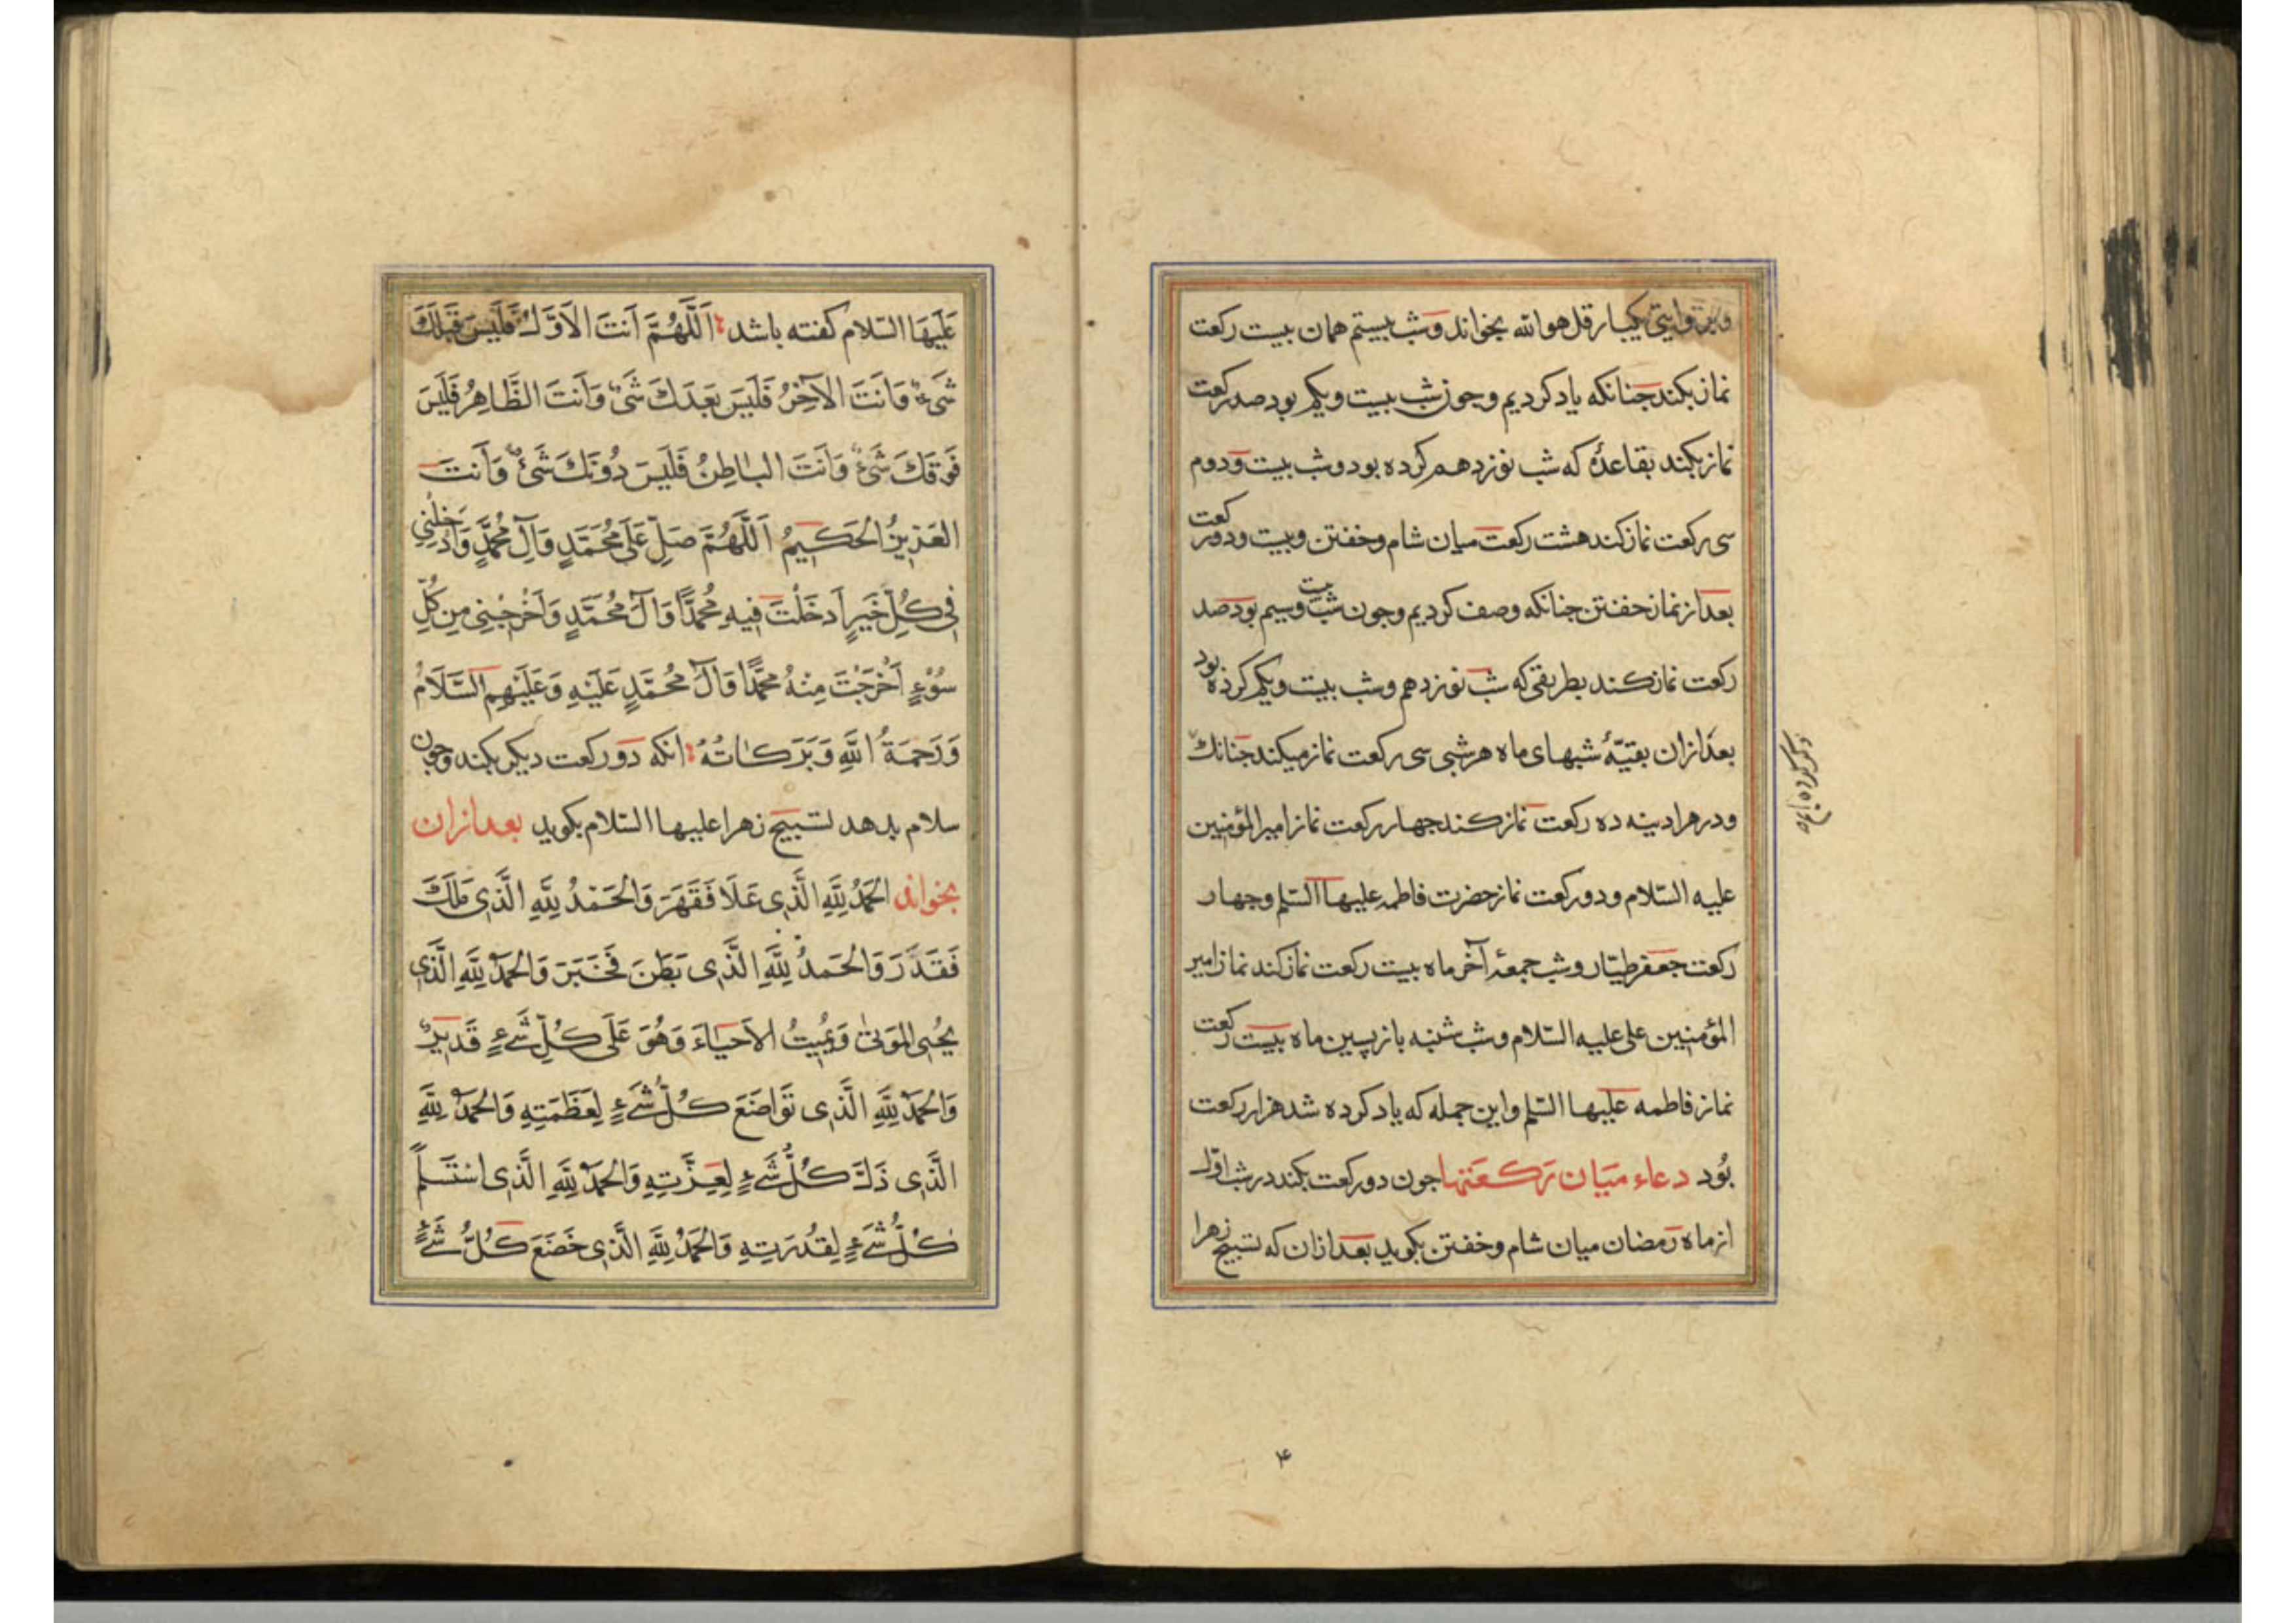 وبروایتی یکبار قل هو الله بخواند وشب بیستم همان بیست رکعت
نماز بکند جنانکه یاد کردیم وجون شب بیست ویکم بود صد رکعت
نماز بکند بقاعدهٔ که شب نوزدهم کرده بود وشب بیست ودوم
سی رکعت نماز کند هشت رکعت میان شام وخفتن وبیست ودو رکعت
بعد از نماز خفتن جنانکه وصف کردیم وجون شب بیست وسیم بود صد
رکعت نماز کند بطریقی که شب نوزدهم وشب بیست ویکم کرده بود
بعد ازان بقیّهٔ شبهای ماه هر شبی سی رکعت نماز میکند جنانک
ودر هر ادینه ده رکعت نماز کند جهار رکعت نماز امیر المؤمنین
علیه السّلام ودو رکعت نماز حضرت فاطمه علیها السّلم وجهار
رکعت جعفر طیّار وشب جمعهٔ آخر ماه بیست رکعت نماز کند نماز امیر
المؤمنین علی علیه السّلام وشب شنبه باز پسین ماه بیست رکعت
نماز فاطمه علیها السّلم واین جمله که یاد کرده شد هزار رکعت
بُود دعاء میَان رَکعَتها جون دو رکعت بکند در شب اوّل
از ماه رمضان میان شام وخفتن بکوید بعد ازان که تسبیح زهرا
۴
عَلَیهَا السّلام کفته باشد اَللّهُمَّ اَنتَ الاَوَّلُ فَلَیسَ قَبلَكَ
شَیءٌ وَاَنتَ الآخِرُ فَلَیسَ بَعدَكَ شَیءٌ وَاَنتَ الظَّاهِرُ فَلَیسَ
فَوقَكَ شَیءٌ وَاَنتَ البَاطِنُ فَلَیسَ دُونَكَ شَیءٌ وَاَنتَ
العَزِیزُ الحَکِیمُ اَللّهُمَّ صَلِّ عَلَی مُحَمَّدٍ وَآلِ مُحَمَّدٍ وَادخِلنِی
فِی کُلِّ خَیرٍ اَدخَلتَ فِیهِ مُحَمَّدًا وَآلَ مُحَمَّدٍ وَاَخرِجنِی مِن کُلِّ
سُوءٍ اَخرَجتَ مِنهُ مُحَمَّدًا وَآلَ مُحَمَّدٍ عَلَیهِ وَعَلَیهِم السَّلَامُ
وَرَحمَةُ اللهِ وَبَرَکَاتُهُ انکه دو رکعت دیکر بکند وجون
سلام بدهد تسبیح زهرا علیها السّلام بکوید بعد ازان
بخواند الحَمدُ لِلّهِ الَّذِی عَلَا فَقَهَرَ وَالحَمدُ لِلّهِ الَّذِی مَلَكَ
فَقَدَرَ وَالحَمدُ لِلّهِ الَّذِی بَطَنَ فَخَبَرَ وَالحَمدُ لِلّهِ الَّذِی
یُحیِی المَوتیٰ وَیُمِیتُ الاَحیَاءَ وَهُوَ عَلَی کُلِّ شَیءٍ قَدِیرٌ
وَالحَمدُ لِلّهِ الَّذِی تَوَاضَعَ کُلُّ شَیءٍ لِعَظَمَتِهِ وَالحَمدُ لِلّهِ
الَّذِی ذَلَّ کُلُّ شَیءٍ لِعِزَّتِهِ وَالحَمدُ لِلّهِ الَّذِی استَسلَمَ
کُلُّ شَیءٍ لِقُدرَتِهِ وَالحَمدُ لِلّهِ الَّذِی خَضَعَ کُلُّ شَیءٍ